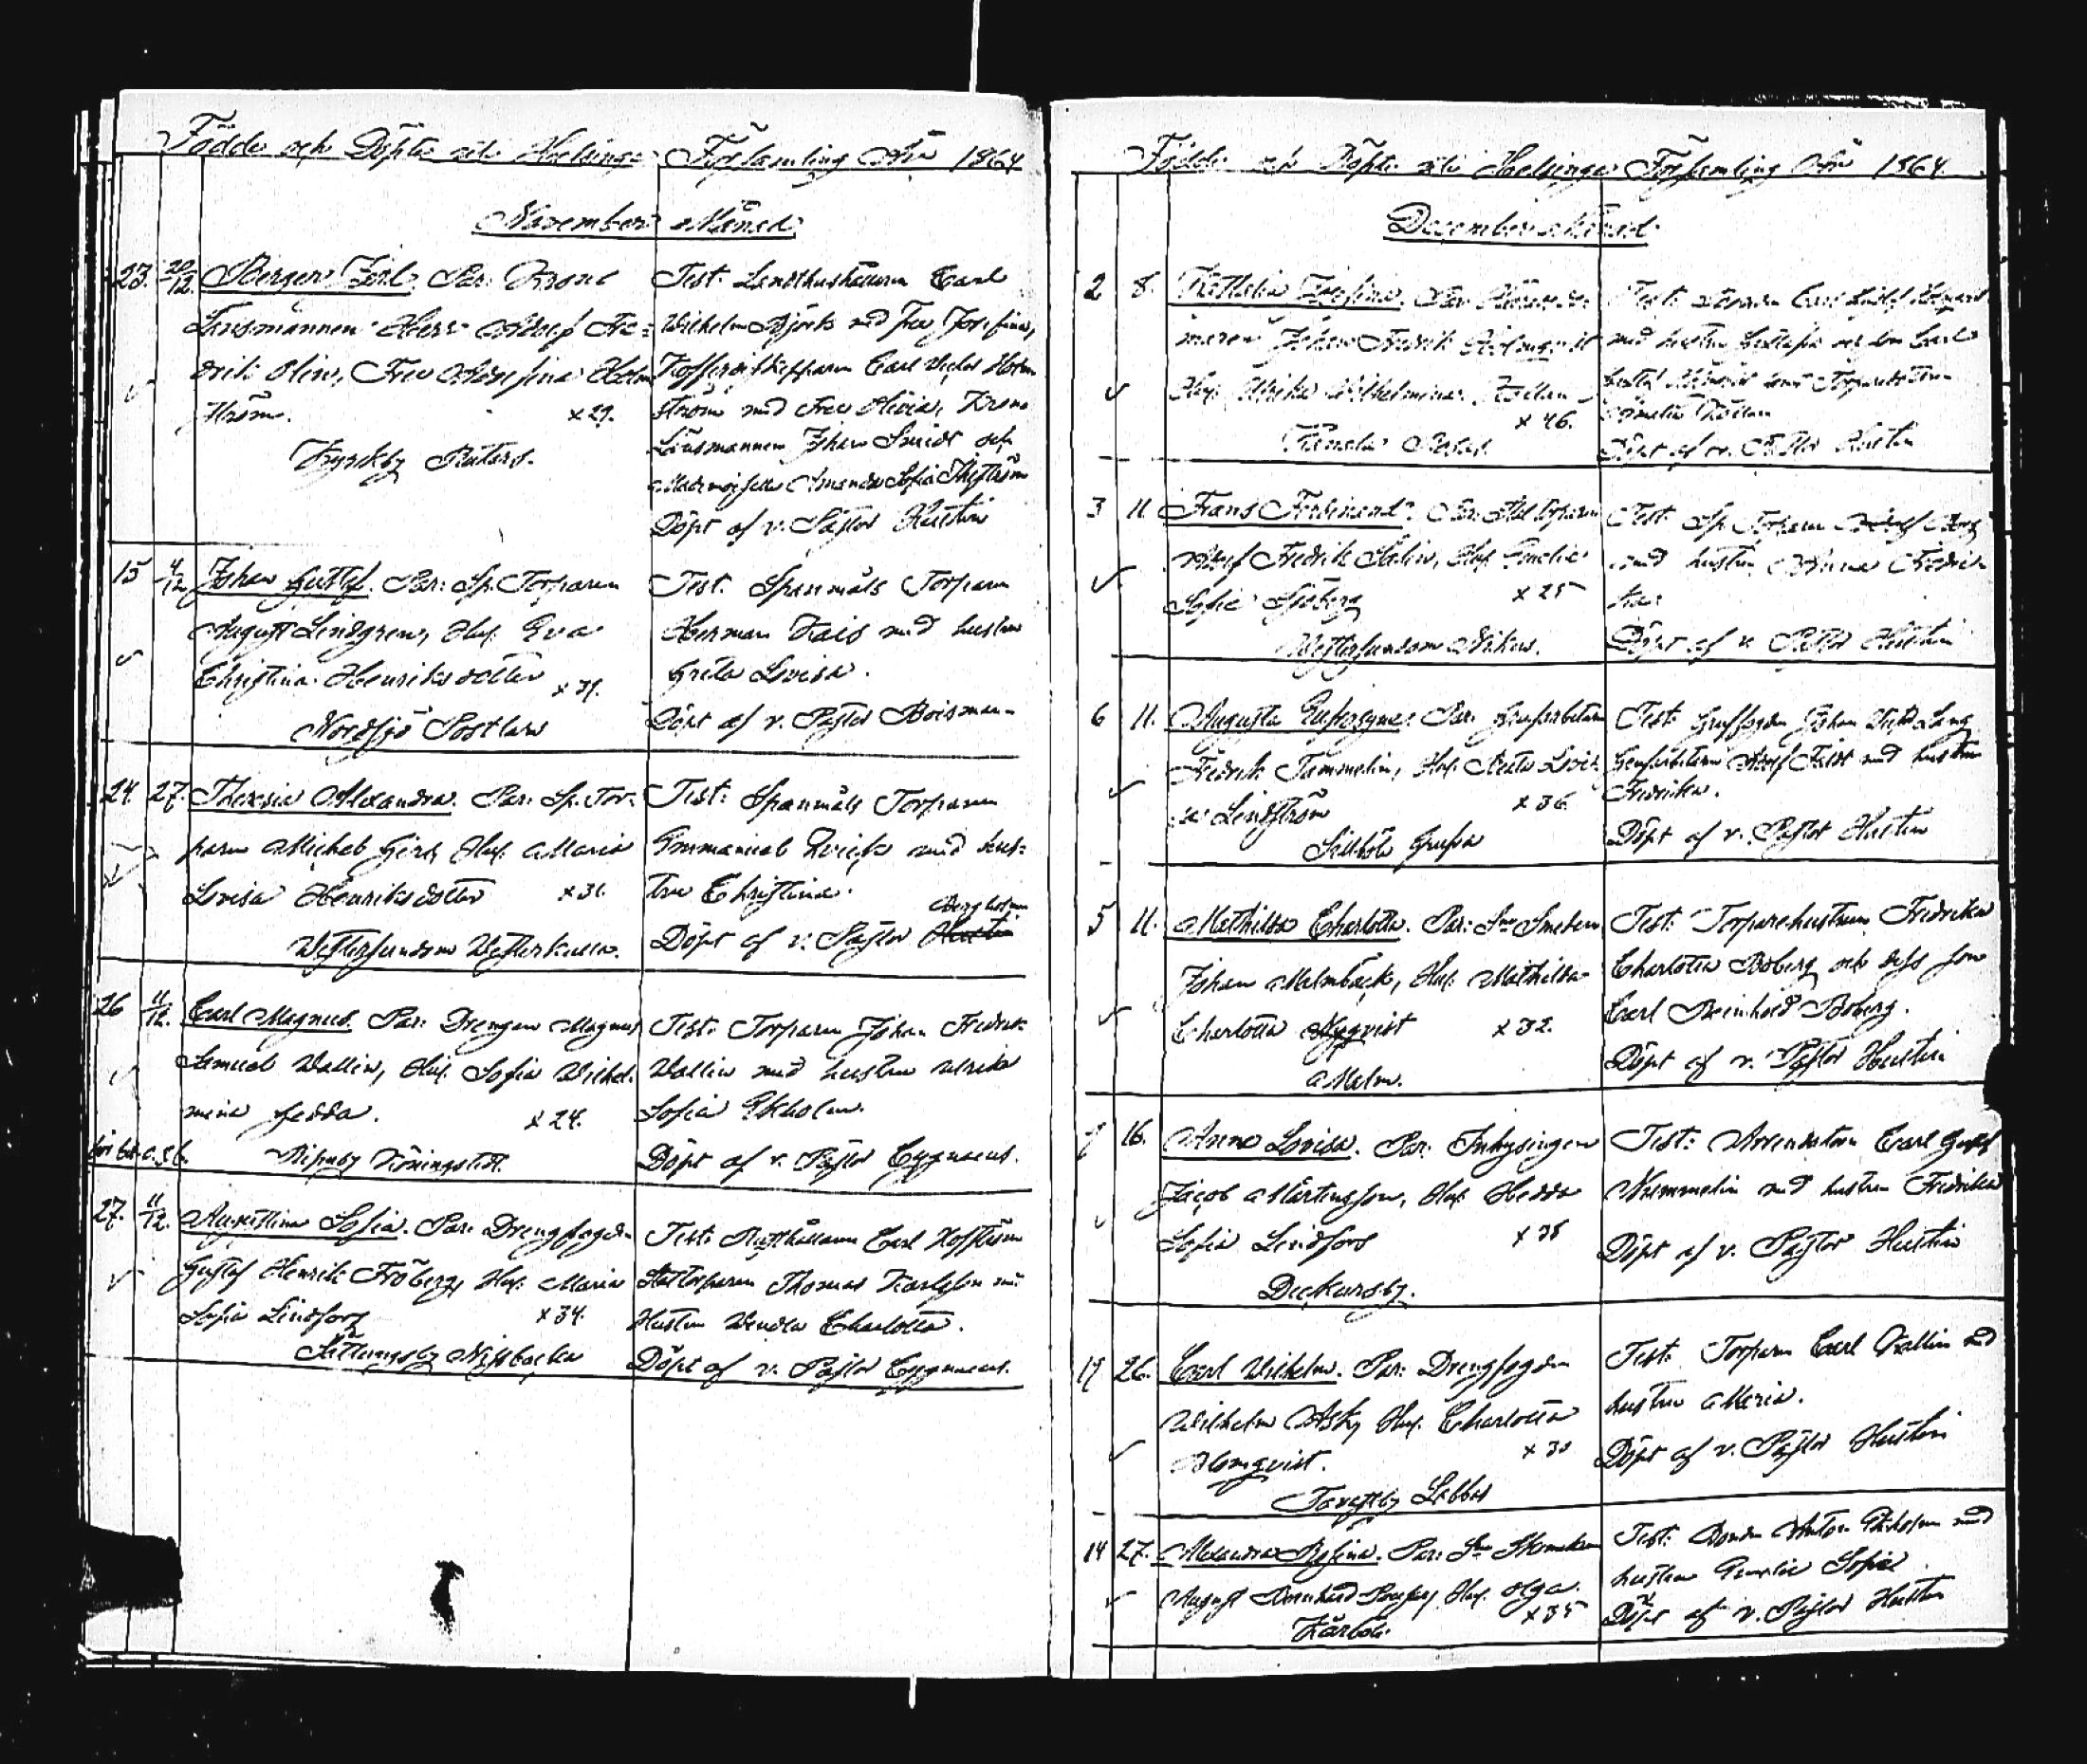 Födde och Döpte uti Helsinge Församling År 1864
November Månad
23. 20/12. Berger Jarl. Par: Krono
Länsmannen Herr Adolf Fre-
drik Olin, Fru Adolfina Holm
ström. x 29.
Kyrkby Rutars.
Test: Landthushållaren Carl
Wilhelm Björks med Fru Josefina,
Kofferdiskepparen Carl Victor Holm
ström med Fru Olivia, Krono
Länsmannen Johan Smidt och
Mademoiselle Amanda Sofia
Döpt af v. Pastor Hustin
15 4/12 Johan Gustaf. Par: Sp. Torparen
August Lindgren, Hus. Eva
Christina Henriksdotter x 31.
Nordsjö Postlars
Test. Spanmåls Torparen
Herman Kais med hustru
Greta Lovisa.
Döpt af v. Pastor Boisman
24 27. Theresia Alexandra. Par: Sp. Tor-
paren Michel Girs, Hus. Maria
Lovisa Henriksdotter x 31
Westersundom Westerkulla.
Test: Spanmåls Torparen
Emmanuel Qvick med hus-
tru Christina.
Bergholm
Döpt af v. Pastor Hustin
26 11/12. Carl Magnus. Par: Drengen Magnus
Samuel Wallin, Hus. Sofia Wilhel-
mina Fedda. x 24.
Ripuby Köningstedt
Test: Torparen Johan Fredrik
Wallin med hustru Ulrika
Sofia Ekholm.
Döpt af v. Pastor Cygnaeus.
27. 11/12. Augustina Sofia. Par: Drengfogden
Gustaf Henrik Fröberg, Hus. Maria
Sofia Lindfors x 34.
Nissbacka
Test: Rusthållaren Carl Hoffström
Torparen Thomas Karlsson med
Hustru Wendla Charlotta.
Döpt af v. Pastor Cygnaeus.
Födde och Döpte uti Helsinge Församling År 1864.
December Månad
2 8. Nathalia Josefina. Par:
Johan Fredrik
Hus. Ulrika Wilhelmina
x 46.
Test: Carl Gustaf
med hustru
Döpt af v. Pastor Hustin
3 11 Frans Ferdinand. Par: Torparen
Adolf Fredrik Stålin, Hus. Emelie
Sofia Sjöberg x 25
Westersundom Nikus.
Test. Sp. Torparen Adolf Berg
med hustru Anna Fredri-
ka.
Döpt af v. Pastor Hustin
6 11. Augusta Eufrosyne. Par: Grufarbetaren
Fredrik Tammelin, Hus. Greta Lovi-
sa Lindström x 36
Sillböle Grufva
Test: Gruffogden Johan Victor Lang
Grufarbetaren Adolf Feldt med hustru
Fredrika.
Döpt af v. Pastor Hustin
5 11. Mathilda Charlotta. Par: Sn Smeden
Johan Malmbäck, Hus. Mathilda
Charlotta Nyqvist x 32.
Malm.
Test: Torparehustrun Fredrika
Charlotta Boberg och dess son
Carl Reinhold Boberg.
Döpt af v. Pastor Hustin
7 16. Anna Lovisa. Par: Inhysingen
Jacob Mårtensson, Hus. Hedda
Sofia Lindfors x 38
Dickursby.
Test: Arrendatorn Carl Gustaf
Nummelin med hustru Fredrika
Döpt af v. Pastor Hustin
17 26. Carl Wilhelm. Par: Drengfogden
Wilhelm Ask, Hus. Charlotta
Blomqvist. x 30
Tavastby Labbas
Test: Torparen Carl Wallin med
hustru Maria.
Döpt af v. Pastor Hustin
14 27. Alexandra Rosina. Par: Sn Skomakaren
August Bernhard Hus. Olga
x 35
Kårböle
Test: Bonden Anton Ekholm med
hustru Emelie Sofia
Döpt af v. Pastor Hustin